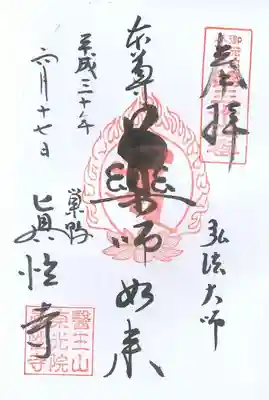 奉拝
弘法大師
本尊
薬師如来
平成三十年
六月十七日
巣鴨
真性寺
醫王山
東光院
真性寺